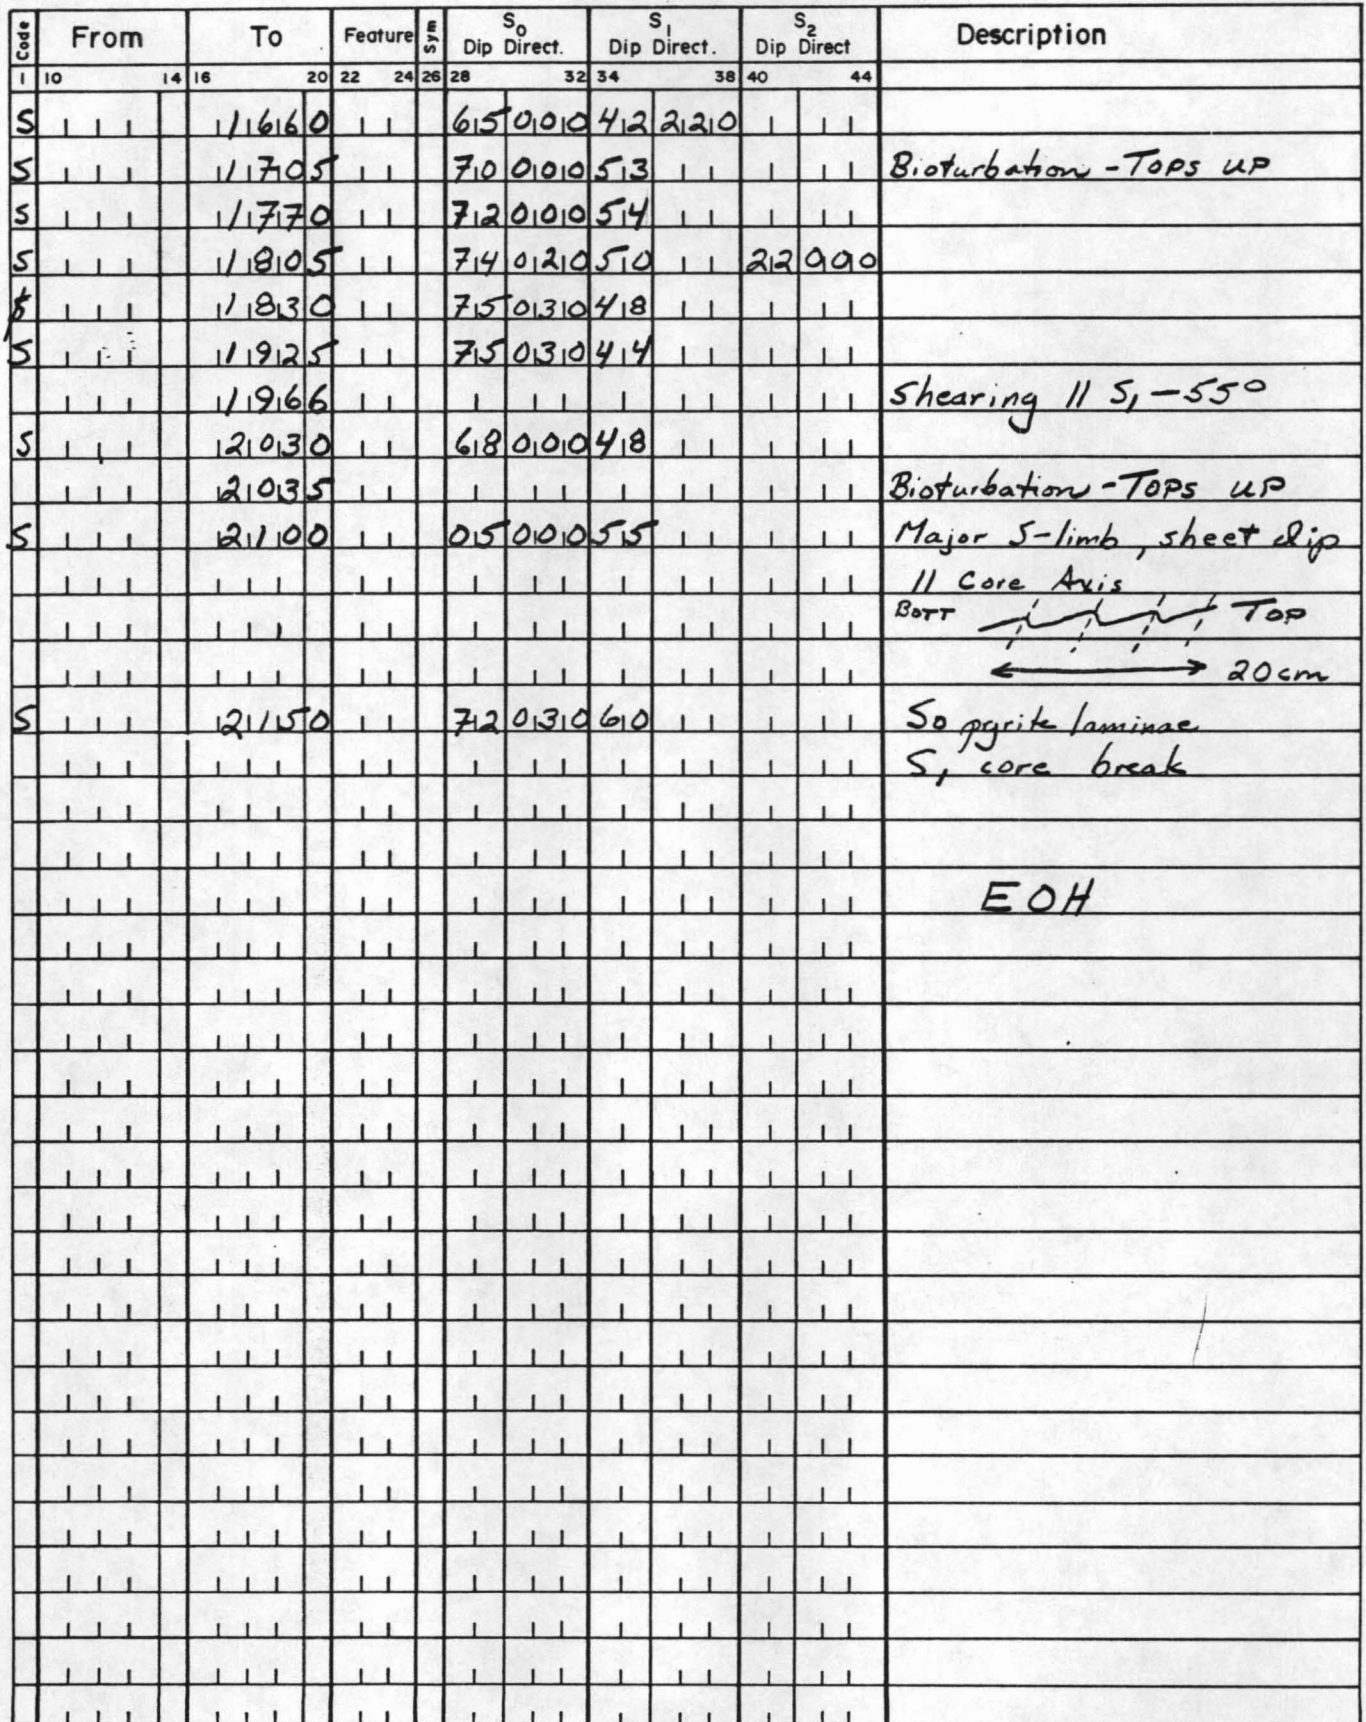 Code From To Feature Sym S0 Dip Direct. S1 Dip Direct. S2 Dip Direct Description
1 10 14 16 20 22 24 26 28 32 34 38 40 44
S 1660 65 000 42 220
S 1705 70 000 53 Bioturbation - Tops up
S 1770 72 000 54
S 1805 74 020 50 22 000
S 1830 75 030 48
S 1925 75 030 44
1966 Shearing // S1 - 55°
S 2030 68 000 48
2035 Bioturbation - Tops up
S 2100 05 000 55 Major S-limb, sheet dip
// Core Axis
Bott Top
20cm
S 2150 72 030 60 So pyrite laminae
S1 core break
EOH